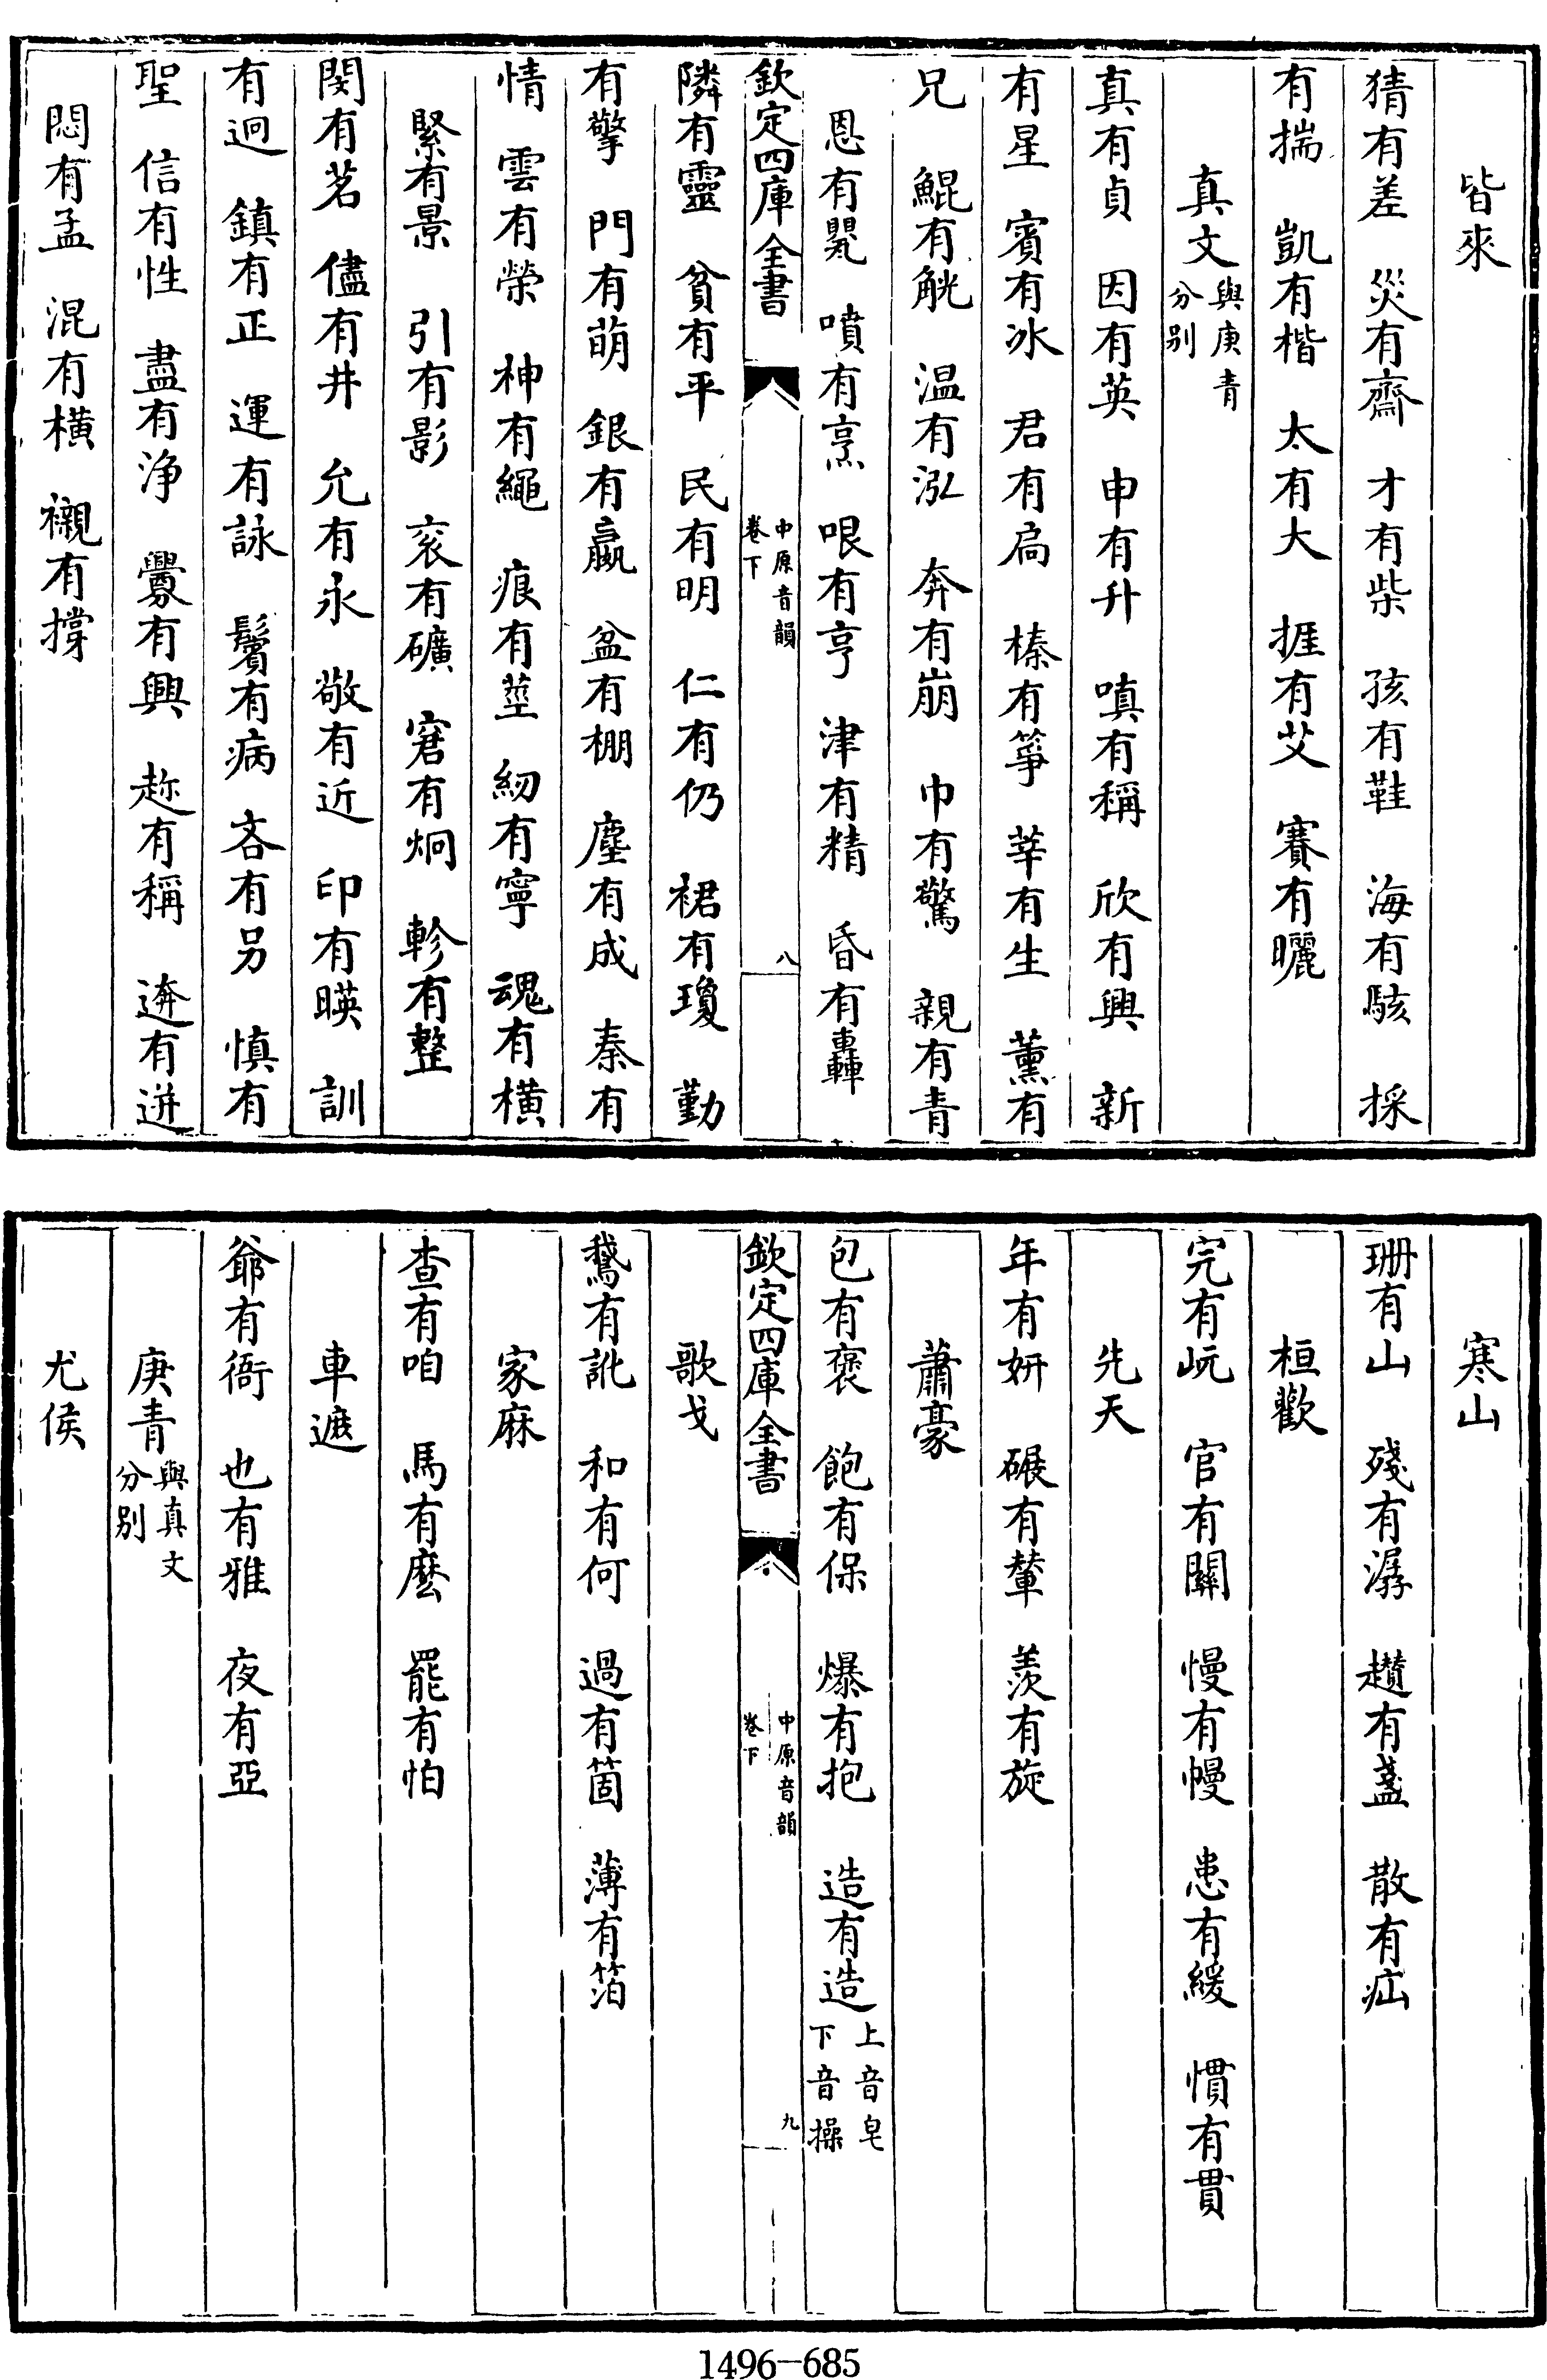 皆來
猜有差　災有齋　才有柴　孩有鞋　海有駭　採
有揣　凱有楷　太有大　捱有艾　賽有曬
真文與庚青分别
真有貞　因有英　申有升　嗔有稱　欣有興　新
有星　賓有冰　君有扃　榛有筝　莘有生　薰有
兄　鯤有觥　温有泓　奔有崩　巾有驚　親有青
恩有甖　噴有烹　哏有亨　津有精　昏有轟
欽定四庫全書　中原音韻卷下　八
隣有靈　貧有平　民有明　仁有仍　裙有瓊　勤
有擎　門有萌　銀有嬴　盆有棚　塵有成　秦有
情　雲有榮　神有繩　痕有莖　紉有寧　魂有橫
緊有景　引有影　衮有礦　窘有炯　軫有整
閔有茗　儘有井　允有永　敬有近　印有暎　訓
有迥　鎮有正　運有詠　鬢有病　吝有另　慎有
聖　信有性　盡有净　釁有興　趂有稱　逩有迸
悶有孟　混有橫　襯有撐
寒山
珊有山　殘有潺　趲有盞　散有疝
桓歡
完有岏　官有關　慢有幔　患有緩　慣有貫
先天
年有妍　碾有輦　羨有旋
蕭豪
包有褒　飽有保　爆有抱　造有造上音皂下音操
欽定四庫全書　中原音韻卷下　九
歌戈
鵞有訛　和有何　過有箇　薄有箔
家麻
查有咱　馬有麽　罷有怕
車遮
爺有衙　也有雅　夜有亞
庚青與真文分别
尤侯
1496-685